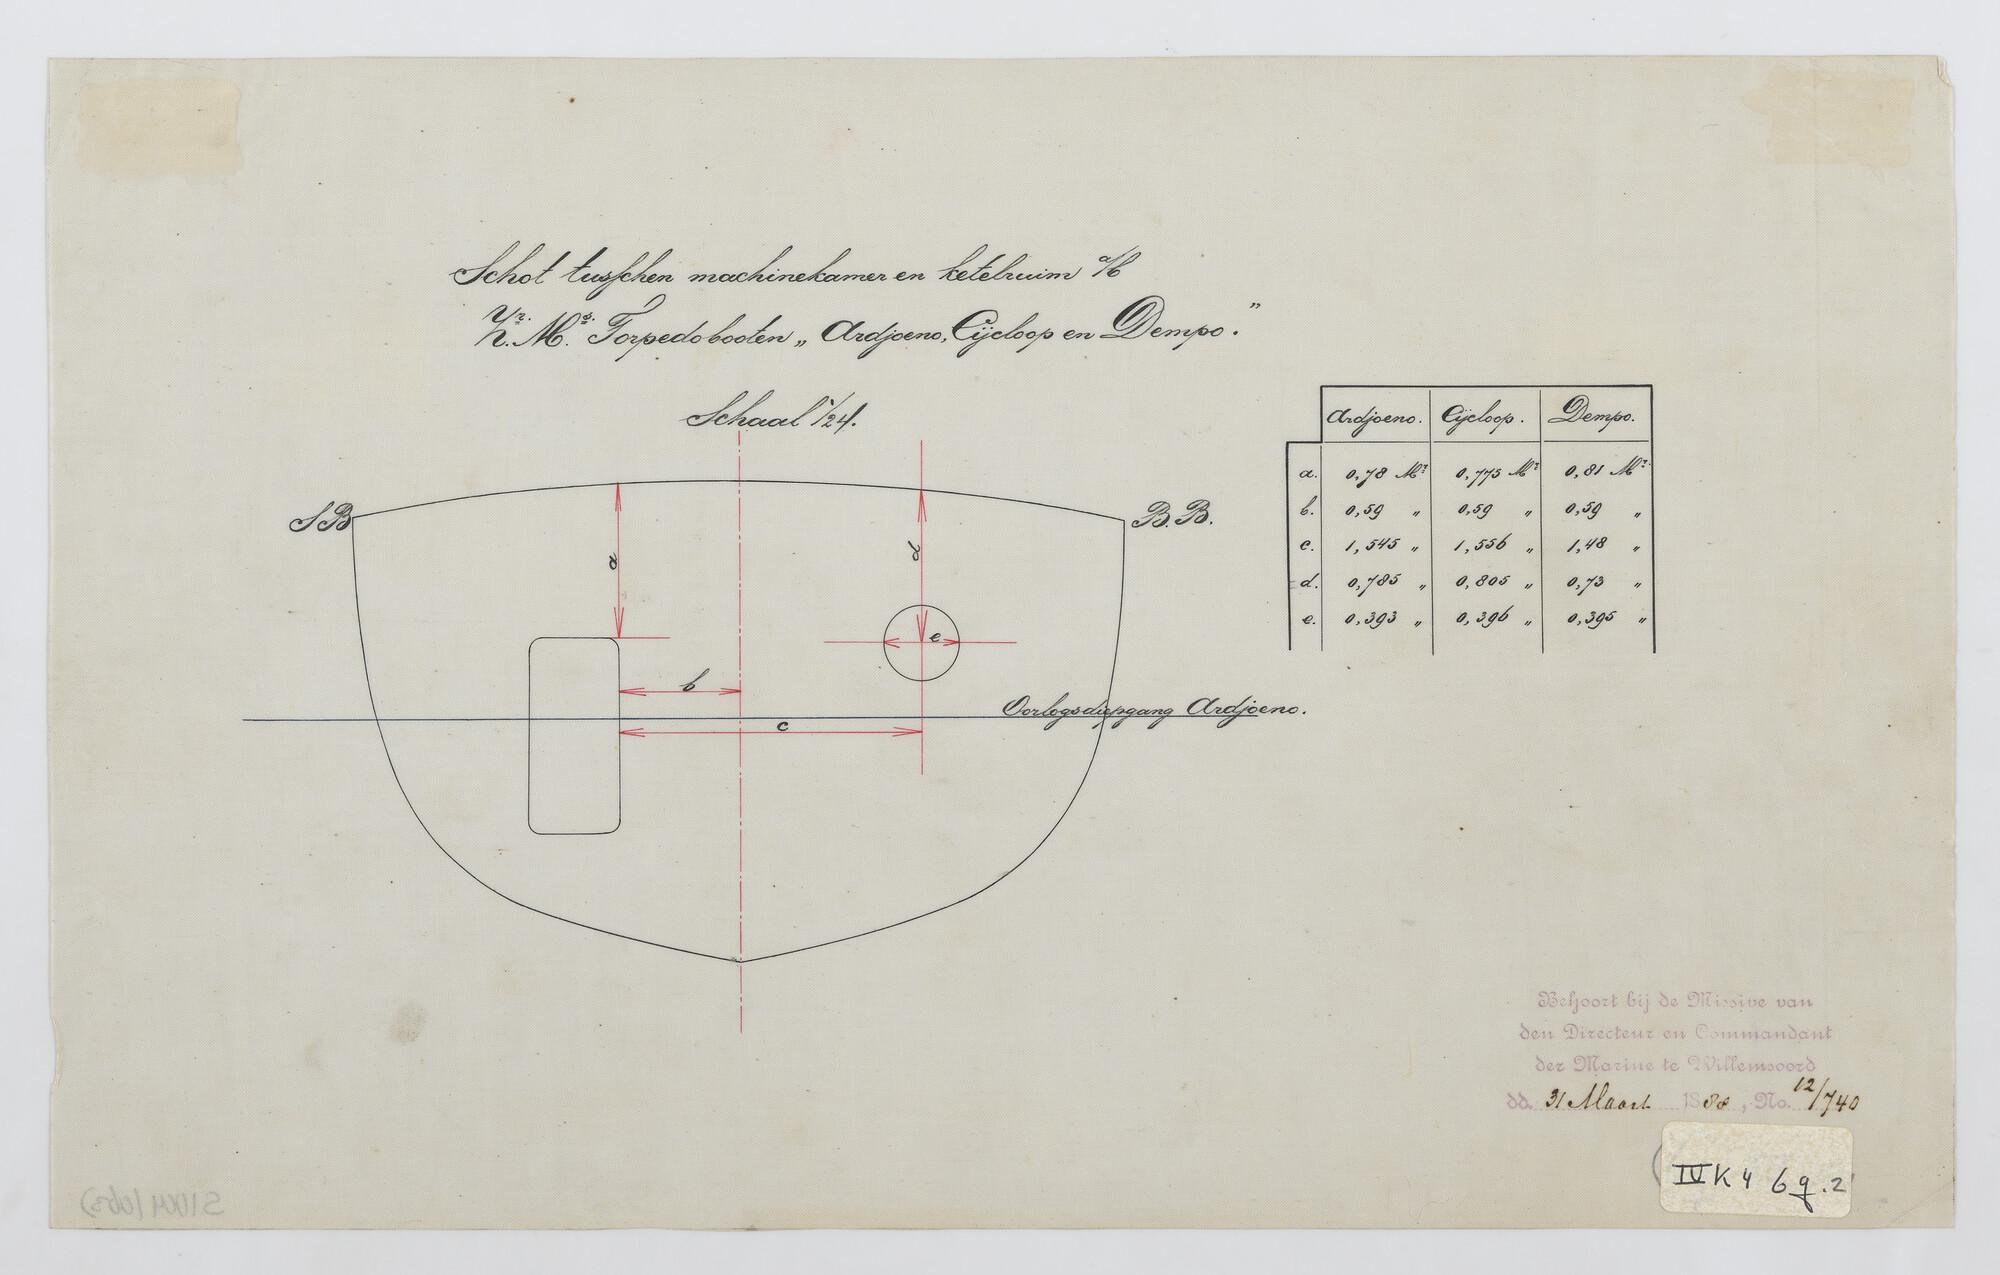 Schot tusschen machinekamer en ketelruim a/b
Zr. Ms. Torpedobooten „Ardjoeno, Cijcloop en Dempo.”
Schaal 1/24.
SB
B.B.
a
d
e
b
c
Oorlogsdiepgang Ardjoeno.
Ardjoeno. Cijcloop. Dempo.
a. 0,78 Mr 0,775 Mr 0,81 Mr
b. 0,59 „ 0,59 „ 0,59 „
c. 1,545 „ 1,556 „ 1,48 „
d. 0,785 „ 0,805 „ 0,73 „
e. 0,393 „ 0,396 „ 0,395 „
Behoort bij de Missive van
den Directeur en Commandant
der Marine te Willemsoord
dd. 31 Maart 1888, No. 12/740
IV K 4 6g.2